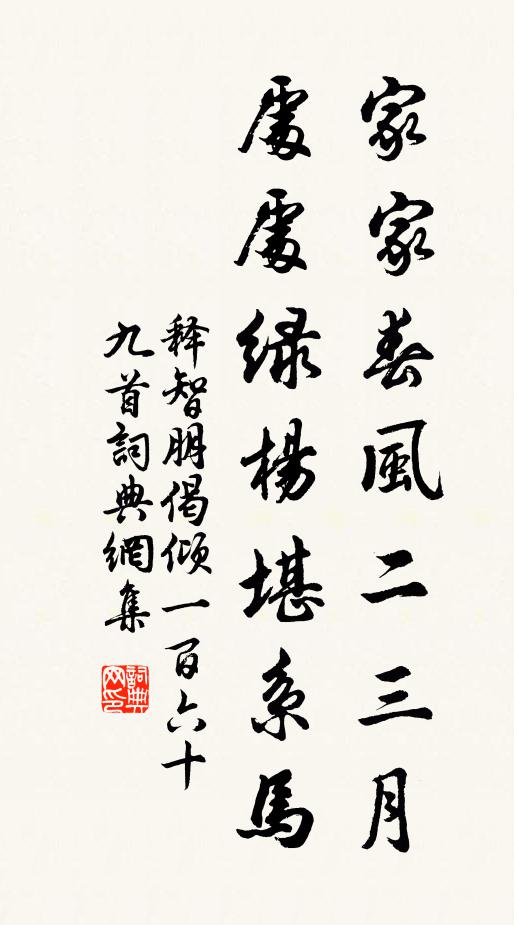 家家春風二三月
處處緑楊堪系馬
释智朋偈倾一百六十
九首詞典網集
詞典
网印